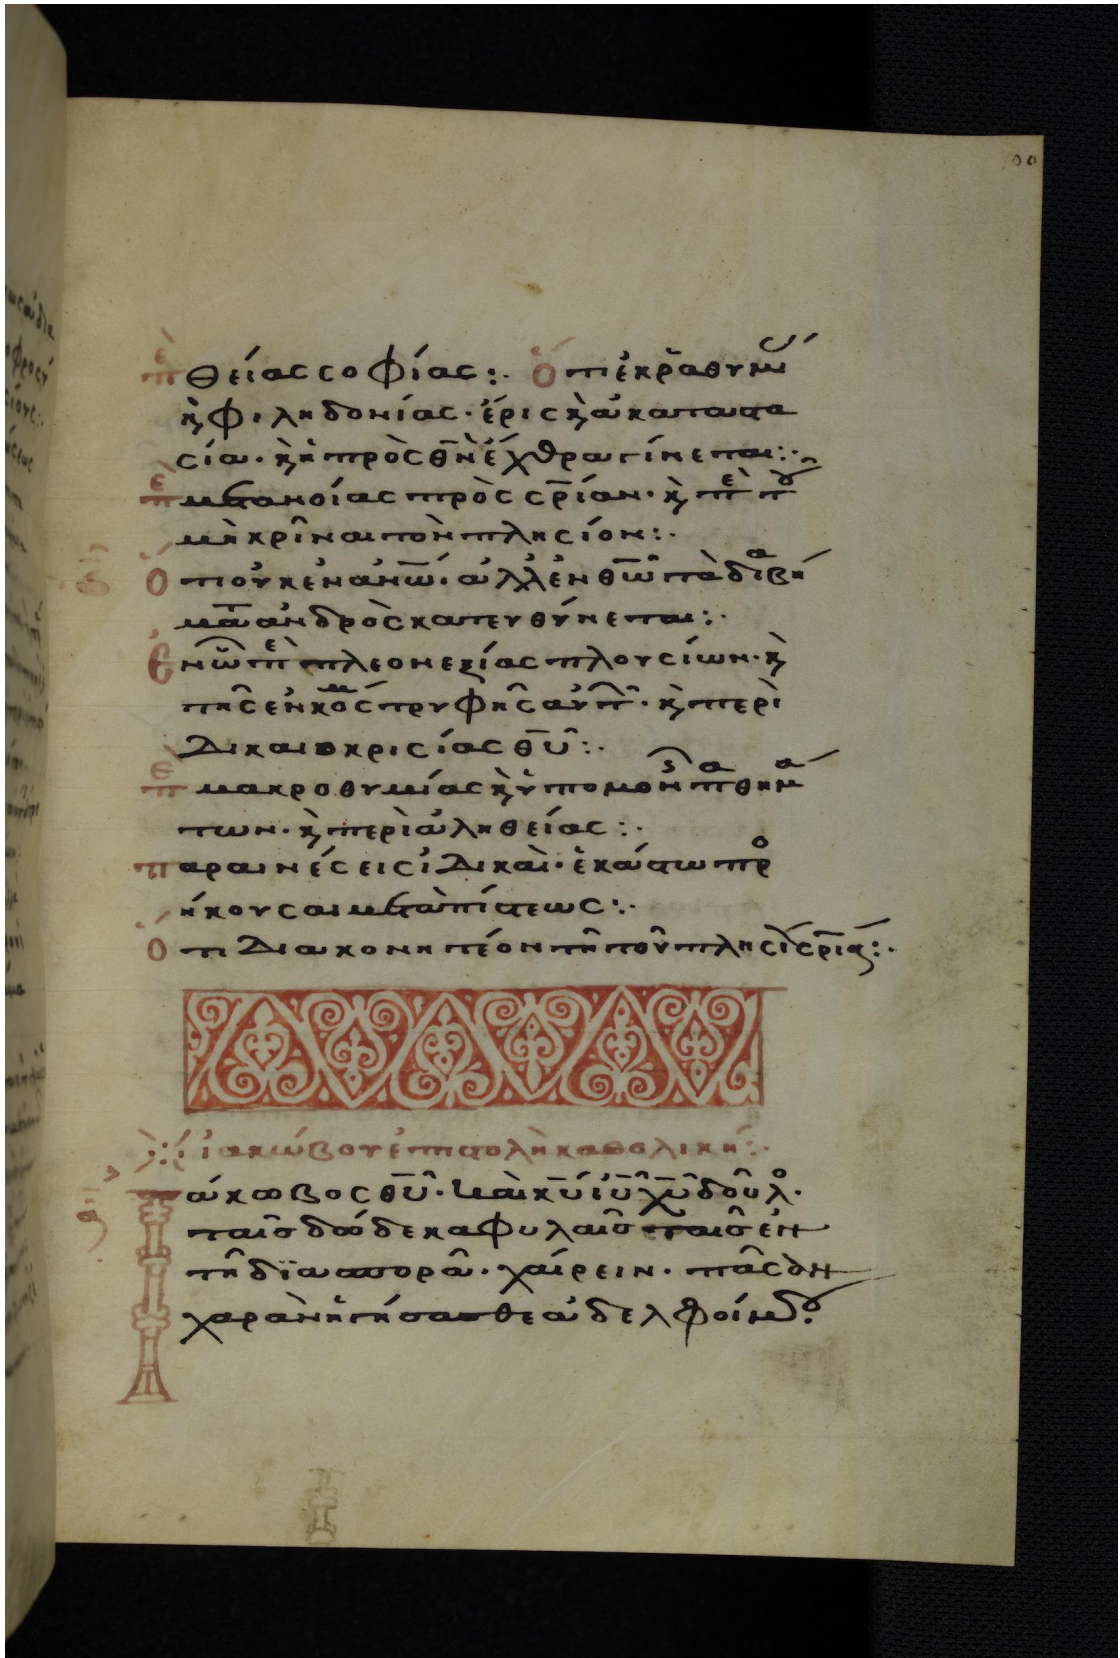 πὲ θείας σοφίας:· Ὅτι ἐκ ῥαθυμί
κ̀ φιληδονίας· ἔρις κ̀ ἀκαταστα
σία· κ̀ ἡ πρὸς θ̅ν̅ ἔχθρα γίνεται:·
πε μετανοίας πρὸς σρ̅ίαν· κ̀ πὲ τοῦ
μὴ κρῖναι τὸν πλησίον:·
Ὅτι οὐκ ἐν ἀν̅ω̅· ἀλλ' ἐν θ̅ω̅ τὰ διαβή
μα̅τα ἀνδρὸς κατευθύνεται:·
Ἐν ὧ πὲ πλεονεξίας πλουσίων· κ̀
τῆς ἐν κόσμ τρυφῆς αὐτ· κ̀ περὶ
δικαιοκρισίας θ̅υ̅:·
πε μακροθυμίας κ̀ ὑπομονῆς παθημά
των· κ̀ περὶ ἀληθείας:·
Παραινέσεις ἰδικαὶ· ἑκάστω πρ
ήκουσαι μετὰ πίστεως:·
Ὅτι διακονητέον τῆ τοῦ πλησί σρ̅ία:·
ἰακώβου ἐπιστολὴ καθολική:·
α
Ιάκωβος θ̅υ̅· καὶ κ̅υ̅ ι̅υ̅ χ̅υ̅ δοῦλο·
ταῖσ δώδεκα φυλαῖσ ταῖσ ἐν
τῆ διασπορᾶ· χαίρειν· πᾶσὰν
χαρὰν ἡγήσασθε ἀδελφοί μου·